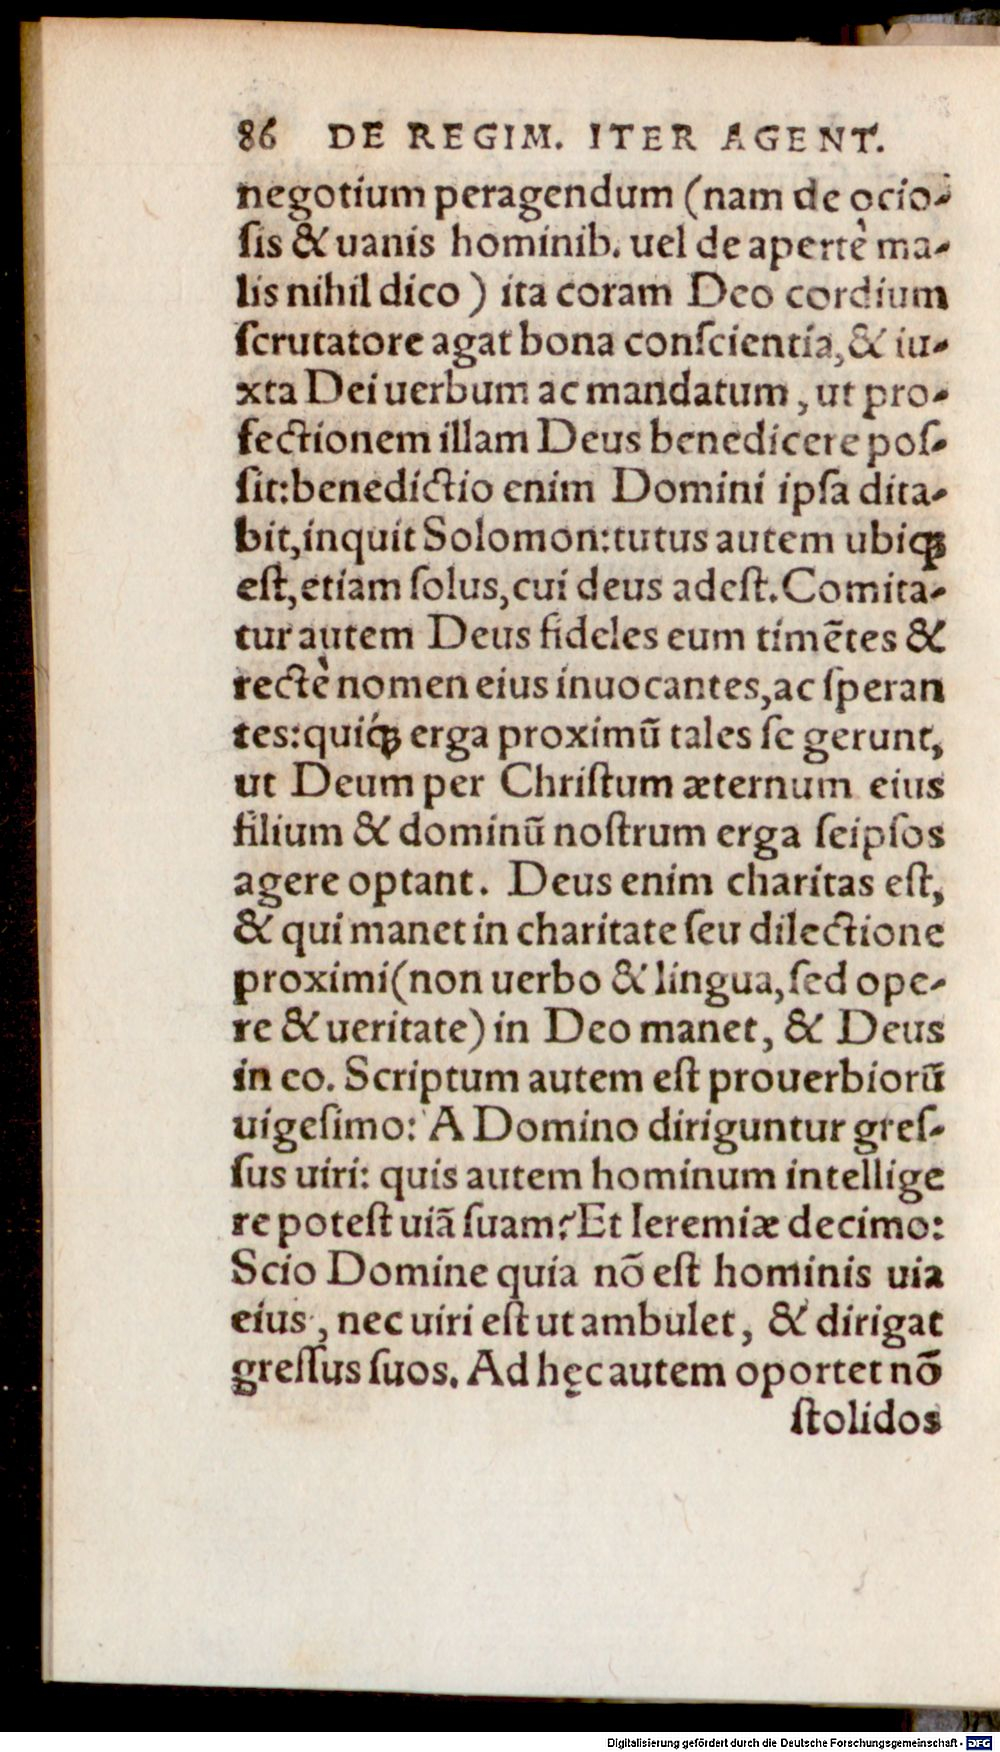 86 DE REGIM. ITER AGENT.
negotium peragendum (nam de ocio-
ſis & uanis hominib. uel de apertè ma-
lis nihil dico) ita coram Deo cordium
ſcrutatore agat bona conſcientia, & iu-
xta Dei uerbum ac mandatum, ut pro-
fectionem illam Deus benedicere poſ-
ſit: benedictio enim Domini ipſa dita-
bit, inquit Solomon: tutus autem ubiqꝫ
eſt, etiam ſolus, cui deus adeſt. Comita-
tur autem Deus fideles eum timẽtes &
rectè nomen eius inuocantes, ac ſperan
tes: quiqꝫ́ erga proximũ tales ſe gerunt,
ut Deum per Chriſtum æternum eius
filium & dominũ noſtrum erga ſeipſos
agere optant. Deus enim charitas eſt,
& qui manet in charitate ſeu dilectione
proximi (non uerbo & lingua, ſed ope-
re & ueritate) in Deo manet, & Deus
in eo. Scriptum autem eſt prouerbiorũ
uigeſimo: A Domino diriguntur greſ-
ſus uiri: quis autem hominum intellige
re poteſt uiã ſuam? Et Ieremiæ decimo:
Scio Domine quia nõ eſt hominis uia
eius, nec uiri eſt ut ambulet, & dirigat
greſſus ſuos. Ad hęc autem oportet nõ
ſtolidos
Digitalisierung gefördert durch die Deutsche Forschungsgemeinschaft - DFG